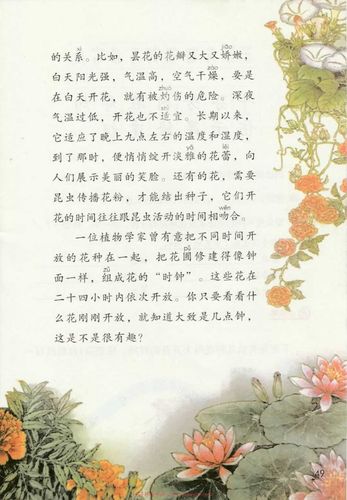 的关系。比如，昙花的花瓣又大又娇嫩，
白天阳光强，气温高，空气干燥，要是
在白天开花，就有被灼伤的危险。深夜
气温过低，开花也不适宜。长期以来，
它适应了晚上九点左右的温度和湿度，
到了那时，便悄悄绽开淡雅的花蕾，向
人们展示美丽的笑脸。还有的花，需要
昆虫传播花粉，才能结出种子，它们开
花的时间往往跟昆虫活动的时间相吻合。
一位植物学家曾有意把不同时间开
放的花种在一起，把花圃修建得像钟
面一样，组成花的“时钟”。这些花在
二十四小时内依次开放。你只要看看什
么花刚刚开放，就知道大致是几点钟，
这是不是很有趣？
49